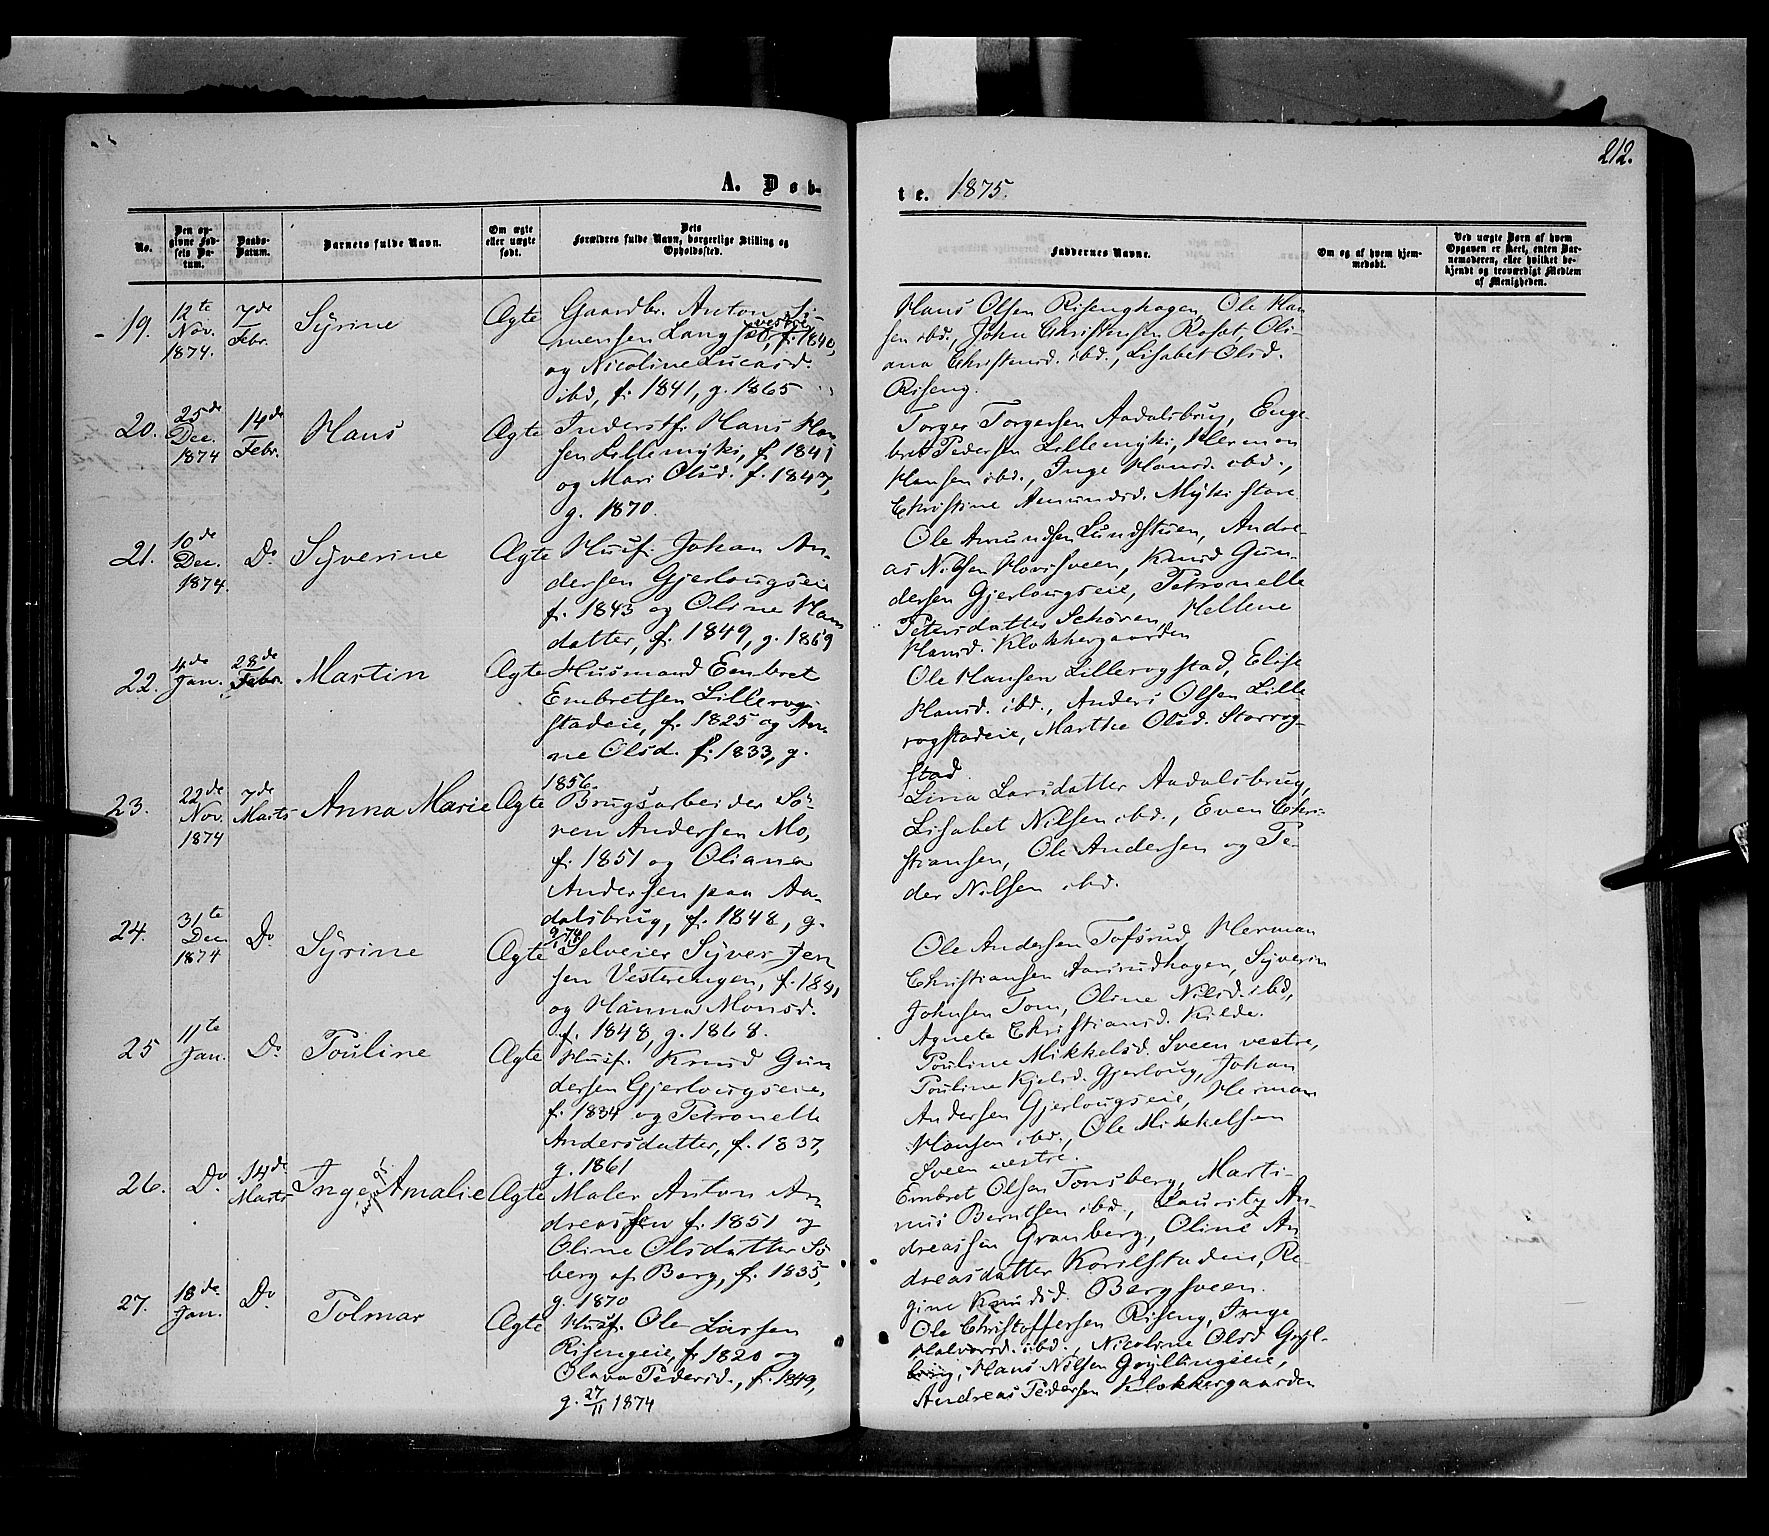 212.
A. Døb-
te. 1875.
No.
Den op-
givne Fød-
sels Da-
tum.
Daabs-
Datum.
Barnets fulde Navn.
Om ægte
eller uægte
født.
Dets
Forældres fulde Navn, borgerlige Stilling og
Opholdssted.
Faddernes Navne.
Om og af hvem hjem-
medøbt.
Ved uægte Børn af hvem
Opgaven er skeet, enten Bar-
nemoderen, eller hvilket be-
kjendt og troværdigt Medlem
af Menigheden.
19.
12te
Nov.
1874.
7de
Febr.
Syrine
Ægte
Gaardbr. Anton Si-
mensen Lang vestre, f. 1840,
og Nicoline Lucasd.
ibd, f. 1841, g. 1865
Hans Olsen Risenghagen, Ole Han
sen ibd., John Christensen Roset, Oli-
ana Christensd. ibd., Lisabet Olsd.
Riseng.
20.
25de
Dec.
1874
14de
Febr.
Hans
Ægte
Inderstf. Hans Han-
sen Lillemyki, f. 1841
og Mari Olsd. f. 1847,
g. 1870.
Torger Torgersen Aadalsbrug, Enge-
bret Pedersen Lillemyki, Herman
Hansen ibd., Inge Hansd. ibd.,
Christine Amundsd. Myki store
21.
10de
Dec.
1874.
Do
Syverine
Ægte
Husf. Johan An-
dersen Gjerlougseie
f. 1843 og Oline Hans
datter, f. 1849, g. 1869
Ole Amundsen Lundstuen, Andre-
as Nilsen Hovisveen, Knud Gun-
dersen Gjerlougseie, Petronelle
Petersdatter Schøren, Hellene
Hansd. Klokkergaarden
22.
4de
Jan.
28de
Febr.
Martin
Ægte
Husmand Eembret
Embretsen Lillerog-
stadeie, f. 1825 og An-
ne Olsd. f. 1833, g.
1856.
Ole Hansen Lillerogstad, Elise
Hansd. ibd., Anders Olsen Lille
rogstadeie, Marthe Olsd. Storrog-
stad.
23.
22de
Nov.
1874
7de
Marts
Anna Marie
Ægte
Brugsarbeider Sö-
ren Andersen Mo,
f. 1851 og Oliana
Andersen paa Aa-
dalsbrug, f. 1848, g.
Lina Larsdatter Aadalsbrug,
Lisabet Nilsen ibd., Even Chri-
stiansen, Ole Andersen og Pe-
der Nilsen ibd.
24.
31te
Dec.
1874
Do
Syrine
Ægte
Selveier Syver Jen
sen Vesterengen, f. 1841
og Hanna Monsd.
f. 1848, g. 1868.
Ole Andersen Tofsrud, Herman
Christiansen Aasrudhagen, Syverin
Johnsen Tom, Oline Nilsd. ibd,
Agnete Christiansd. Kilde.
25
11te
Jan.
Do
Pouline
Ægte
Husf. Knud Gun
dersen Gjerlougseie,
f. 1834 og Petronelle
Andersdatter, f. 1837,
g. 1861
Pouline Mikkelsd. Sveen vestre,
Pouline Kjelsd. Gjerloug, Johan
Andersen Gjerlougseie, Herman
Hansen ibd., Ole Mikkelsen
Sveen vestre.
26.
Do
14de
Marts
Inge Amalie
Ægte
Maler Anton An
dreassen f. 1851 og
Oline Olsdatter Sö
berg af Berg, f. 1835,
g. 1870
Embret Olsen Tonsberg, Marti-
nus Berntsen ibd., Lauritz An-
dreassen Granberg, Oline An
dreasdatter Korilstadeie, Re-
gine Knudsd. Bergsveen.
27.
18de
Jan.
Do
Polmar
Ægte
Husf. Ole Larsen
Risengeie, f. 1820 og
Olava Pedersd., f. 1849,
g. 27/11 1874
Ole Christoffersen Riseng, Inge
Halvorsd. ibd., Nicoline Olsd. Gøyl-
ling, Hans Nilsen Gøyllingseie,
Andreas Pedersen Klokkergaarden